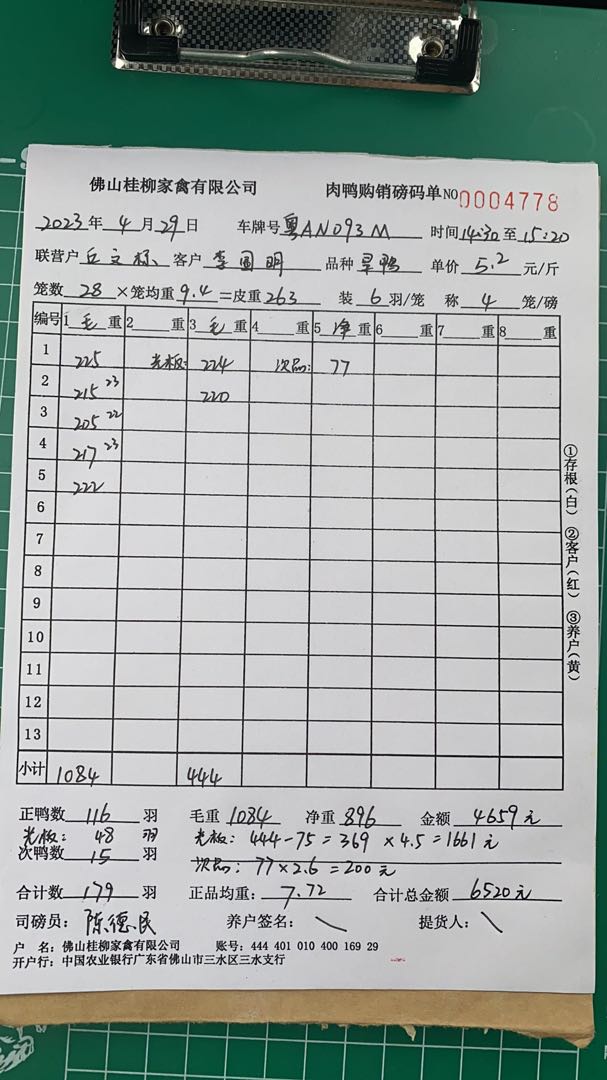 佛山桂柳家禽有限公司 肉鸭购销磅码单 NO 0004778
2023 年 4 月 29 日 车牌号 粤AN093M 时间 14:30 至 15:20
联营户 丘文标、 客户 李国明 品种 旱鸭 单价 5.2 元/斤
笼数 28 ×笼均重 9.4 =皮重 263 装 6 羽/笼 称 4 笼/磅
编号 1 毛 重 2 重 3 毛 重 4 重 5 净 重 6 重 7 重 8 重
1 225 光板: 224 次品: 77
2 215 23 220
3 205 22
4 217 23
5 222
6
7
8
9
10
11
12
13
小计 1084 444
正鸭数 116 羽 毛重 1084 净重 896 金额 4659元
光板: 48 羽 光板: 444-75=369 ×4.5=1661元
次鸭数 15 羽 次品: 77×2.6=200元
合计数 179 羽 正品均重: 7.72 合计总金额 6520元
司磅员: 陈德民 养户签名: 提货人:
户 名: 佛山桂柳家禽有限公司 账号: 444 401 010 400 169 29
开户行: 中国农业银行广东省佛山市三水区三水支行
①存根(白) ②客户(红) ③养户(黄)